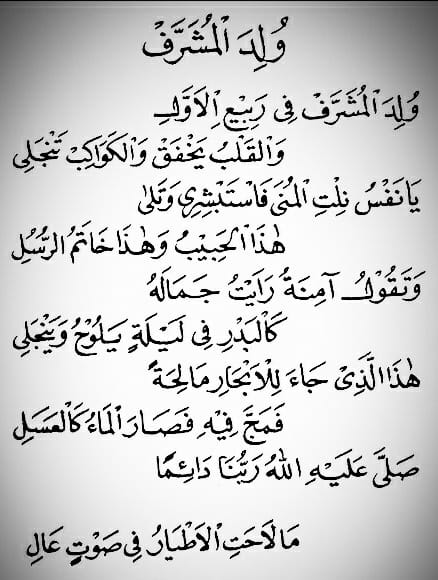 وُلِدَ الْمُشَرَّفْ
وُلِدَ الْمُشَرَّفْ فِى رَبِيْعِ الْاَوَّلِ
وَالْقَلْبُ يَخْفَقْ وَالْكَوَاكِبْ تَنْجَلِى
يَانَفْسُ نِلْتِ الْمُنَى فَاسْتَبْشِرِى وَتَلَى
هٰذَا الْحَبِيْبُ وَهٰذَا خَاتَمُ الرُّسُلِ
وَتَقُوْلُ آمِنَةُ رَاَيْتُ جَمَالَهُ
كَالْبَدْرِ فِى لَيْلَةٍ يَلُوْحُ وَيَنْجَلِى
هٰذَا الَّذِىْ جَاءَ لِلْاَبْحَارِ مَالِحَةً
فَمَجَّ فِيْهِ فَصَارَ الْمَاءُ كَالْعَسَلِ
صَلَّى عَلَيْهِ اللّٰهُ رَبُّنَا دَائِمًا
مَالَاحَتِ الْاَطْيَارُ فِى صَوْتٍ عَالِ